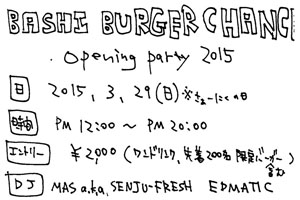 BASHI BURGER CHANC
. Opening party 2015
日 2015, 3, 29 (日)
時間 PM 12:00 〜 PM 20:00
エントリー ¥2,000 (ワンドリンク, 先着200名 限定バーガー含む)
DJ MAS a.k.a. SENJU-FRESH EDMATIC